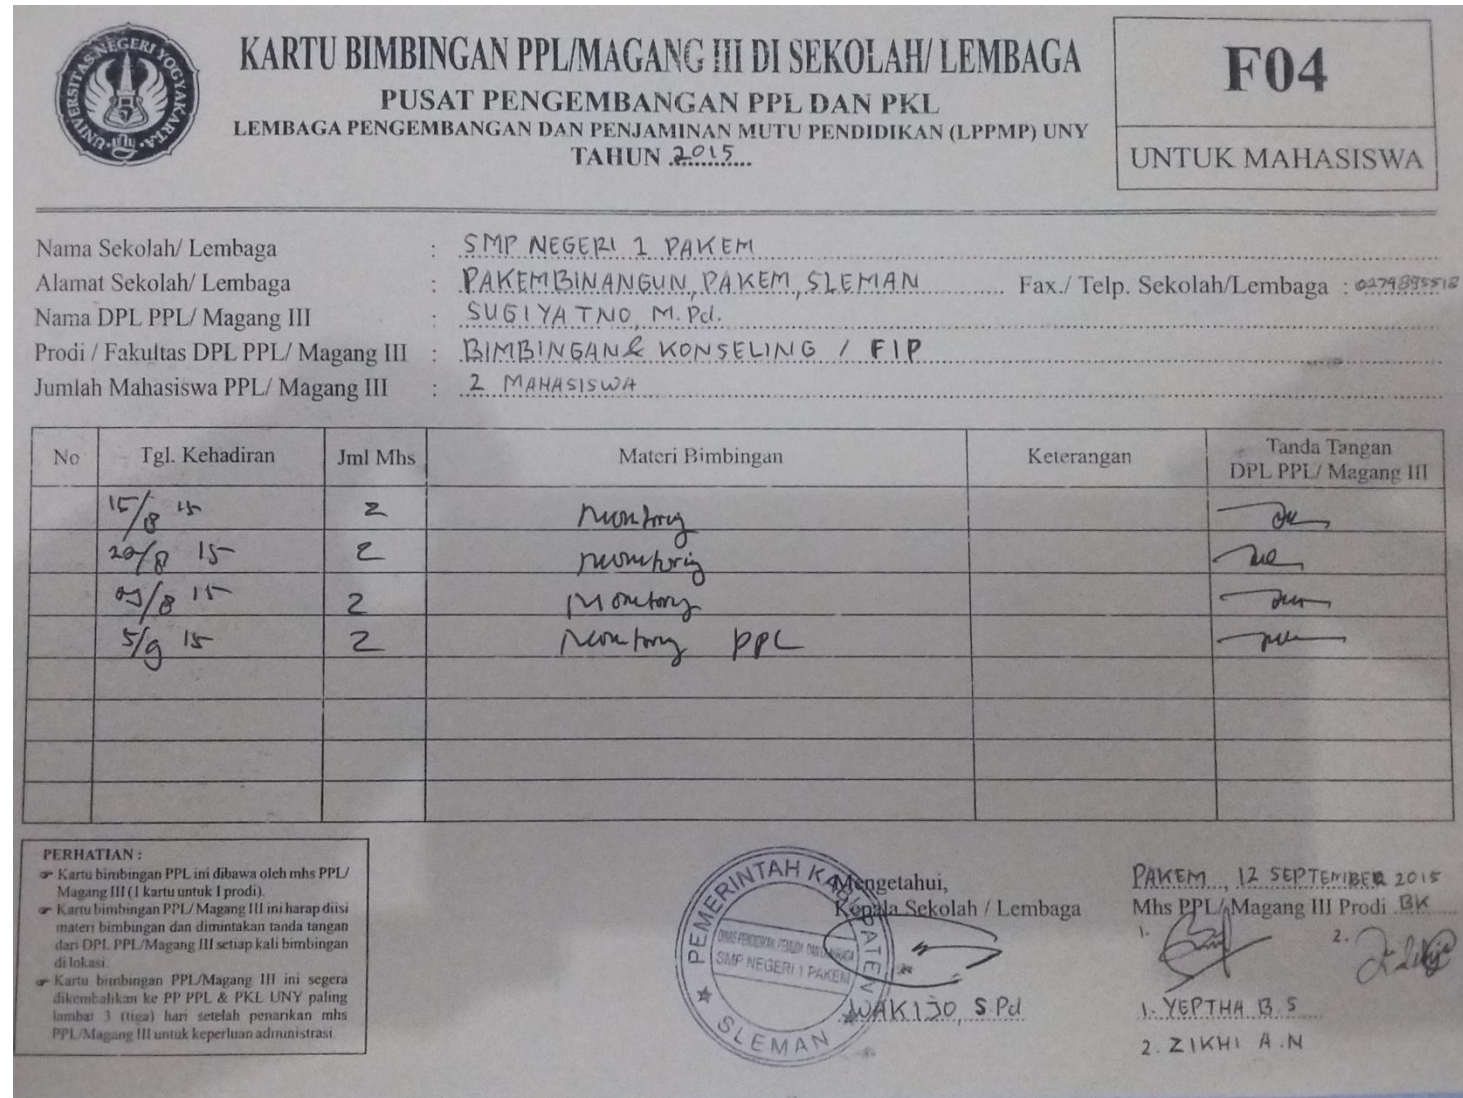 UNIVERSITAS NEGERI YOGYAKARTA
KARTU BIMBINGAN PPL/MAGANG III DI SEKOLAH/ LEMBAGA
PUSAT PENGEMBANGAN PPL DAN PKL
LEMBAGA PENGEMBANGAN DAN PENJAMINAN MUTU PENDIDIKAN (LPPMP) UNY
TAHUN 2015
F04
UNTUK MAHASISWA
Nama Sekolah/ Lembaga : SMP NEGERI 1 PAKEM
Alamat Sekolah/ Lembaga : PAKEMBINANGUN, PAKEM, SLEMAN Fax./ Telp. Sekolah/Lembaga :
Nama DPL PPL/ Magang III : SUGIYATNO, M.Pd.
Prodi / Fakultas DPL PPL/ Magang III : BIMBINGAN & KONSELING / FIP
Jumlah Mahasiswa PPL/ Magang III : 2 MAHASISWA
No Tgl. Kehadiran Jml Mhs Materi Bimbingan Keterangan Tanda Tangan DPL PPL/ Magang III
15/8 15 2 Monitoring
20/8 15 2 monitoring
/8 15 2 Monitoring
5/9 15 2 Monitoring PPL
PERHATIAN :
Kartu bimbingan PPL ini dibawa oleh mhs PPL/
Magang III (1 kartu untuk 1 prodi).
Kartu bimbingan PPL/Magang III ini harap diisi
materi bimbingan dan dimintakan tanda tangan
dari DPL PPL/Magang III setiap kali bimbingan
di lokasi.
Kartu bimbingan PPL/Magang III ini segera
dikembalikan ke PP PPL & PKL UNY paling
lambat 3 (tiga) hari setelah penarikan mhs
PPL/Magang III untuk keperluan administrasi.
PEMERINTAH KABUPATEN
DINAS PENDIDIKAN, PEMUDA DAN OLAHRAGA
SMP NEGERI 1 PAKEM
SLEMAN
Mengetahui,
Kepala Sekolah / Lembaga
WAKIJO, S.Pd
PAKEM, 12 SEPTEMBER 2015
Mhs PPL/ Magang III Prodi BK
1. 2.
1. YEPTHA B.S
2. ZIKHI A.N